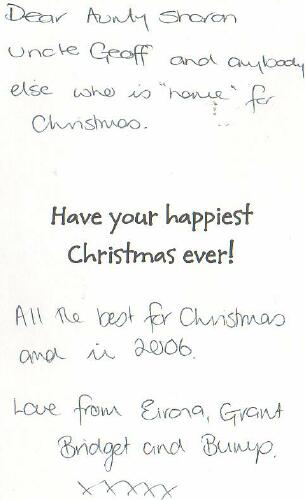 Dear Aunty Sharon
Uncle Geoff and anybody
else who is "home" for
Christmas.
Have your happiest
Christmas ever!
All the best for Christmas
and in 2006.
Love from Eirona, Grant
Bridget and Bump.
XXXXX